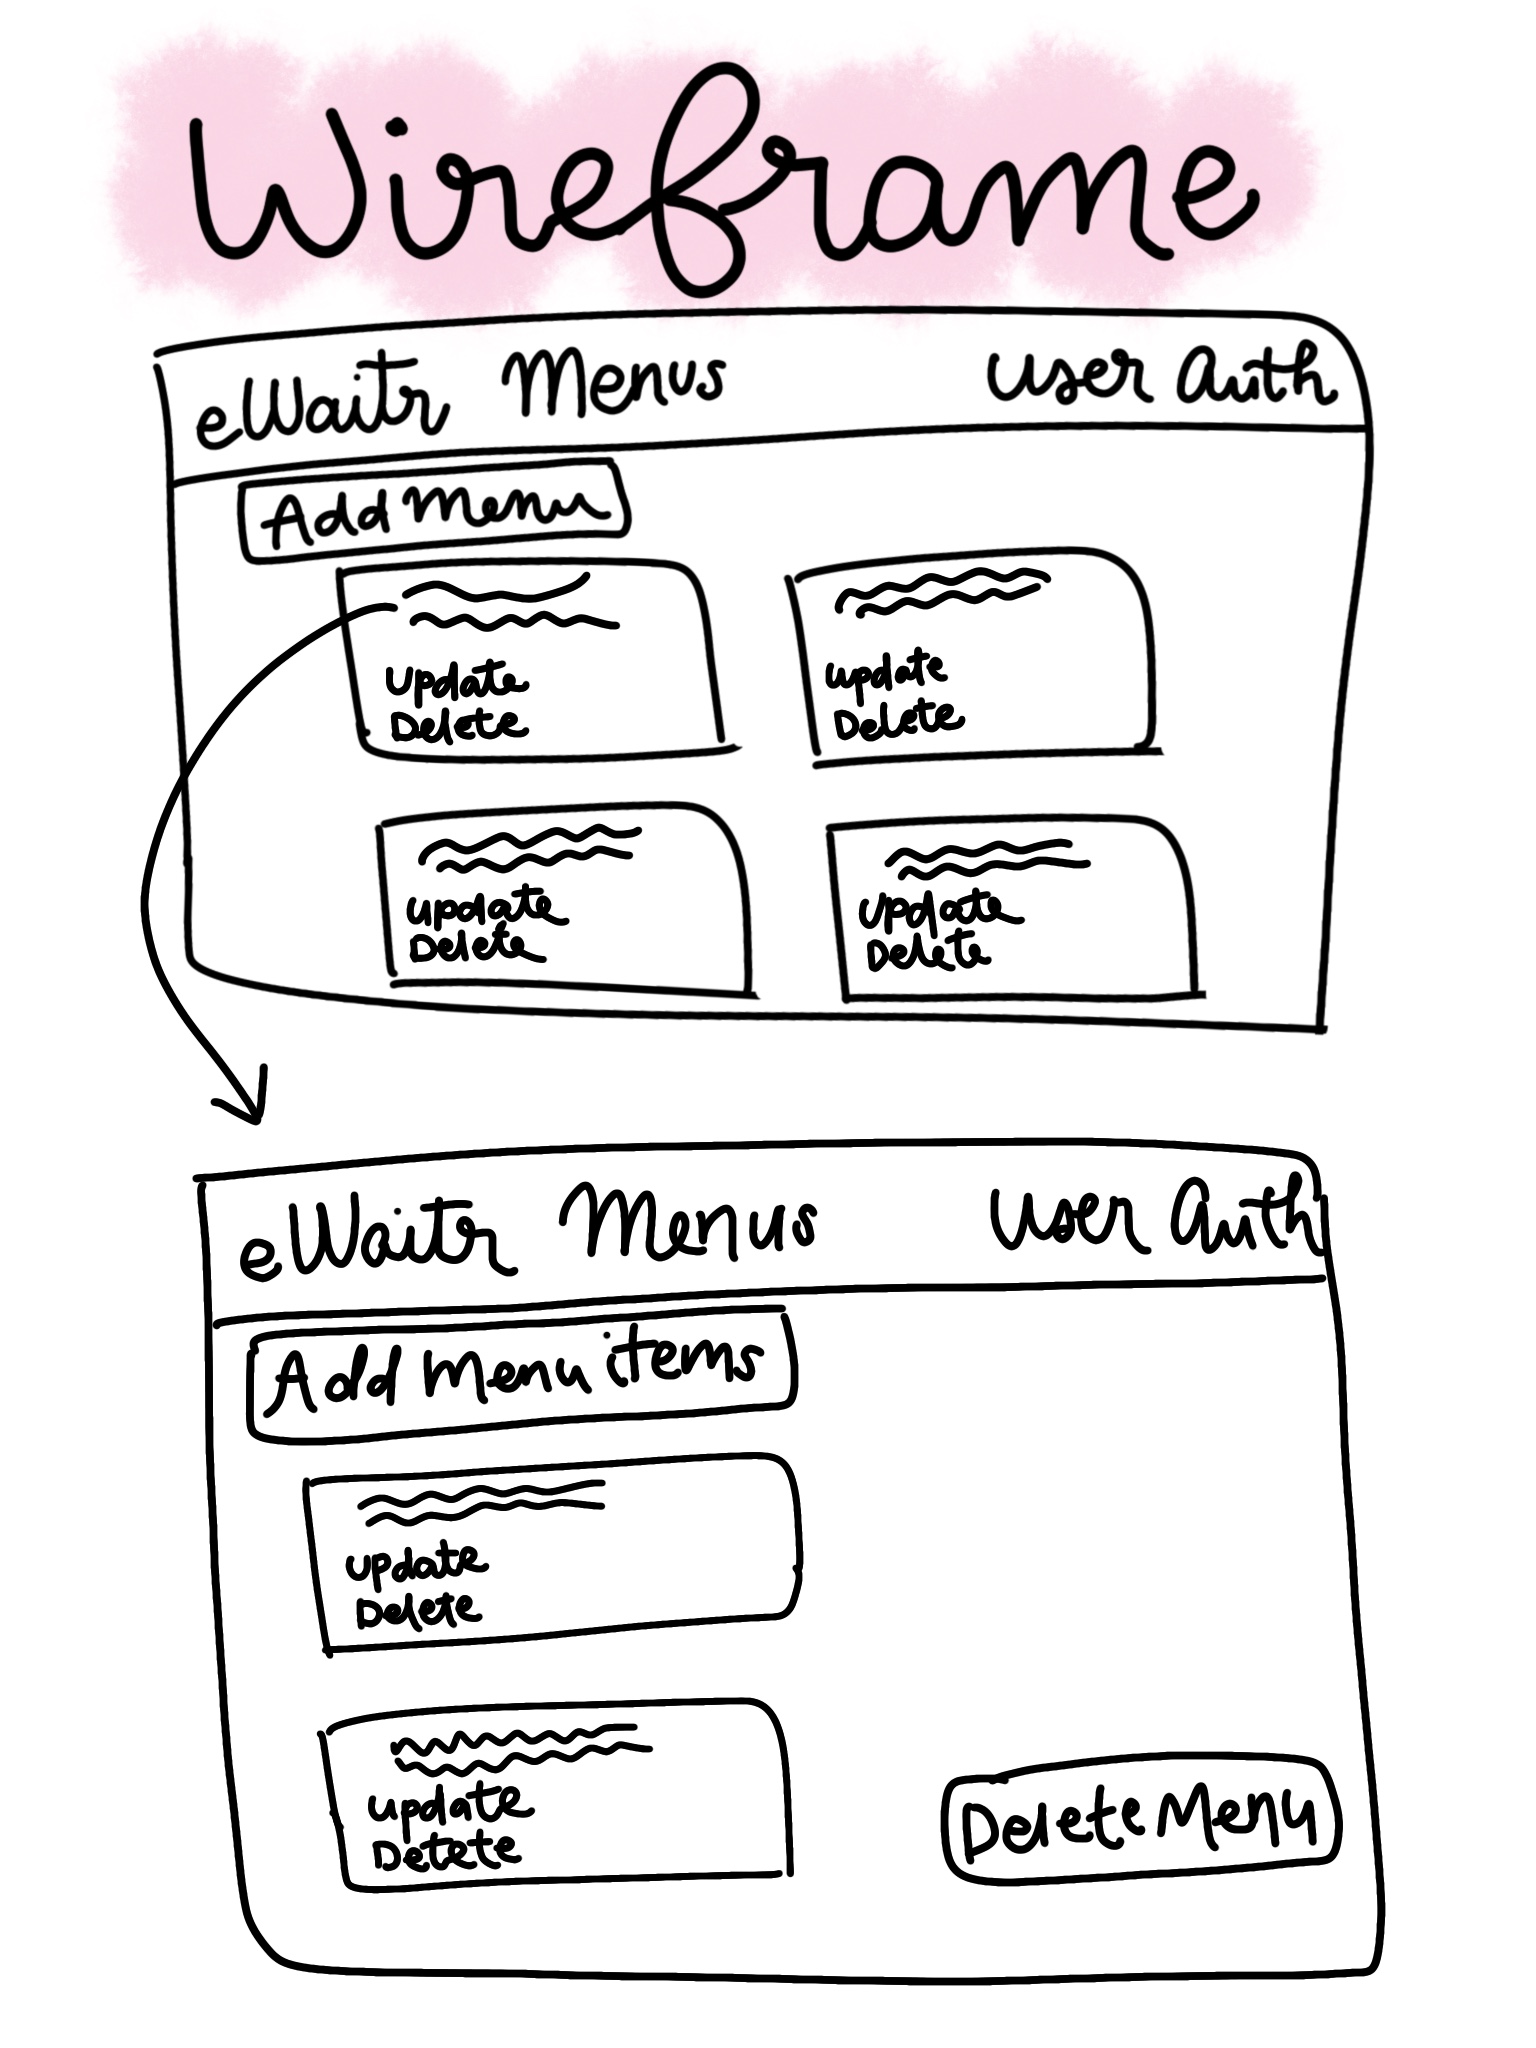 Wireframe
eWaitr Menus User Auth
Add Menu
Update
Delete
update
Delete
update
Delete
Update
Delete
eWaitr Menus User Auth
Add Menu items
update
Delete
update
Detete
Delete Menu